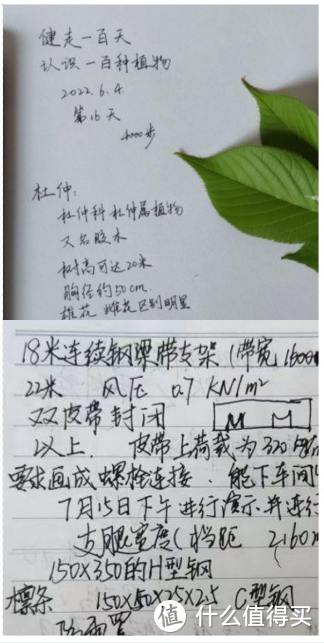 健走一百天
认识一百种植物
2022.6.4
第16天
4000步
杜仲:
杜仲科杜仲属植物
又名胶木
树高可达20米
胸径约50cm.
雄花 雌花区别明显
18米连续钢彈带支架(带宽1600m
22米 风压 0.7 KN/m²
双皮带封闭
以上. 皮带上荷载为320kg/m
要求画成螺栓连接. 能下车间
7月15日下午进行演示.并进行
支腿宽度(档距 2160m
150X350的H型钢
檩条 150X50X25X2.5 C型钢
值 什么值得买